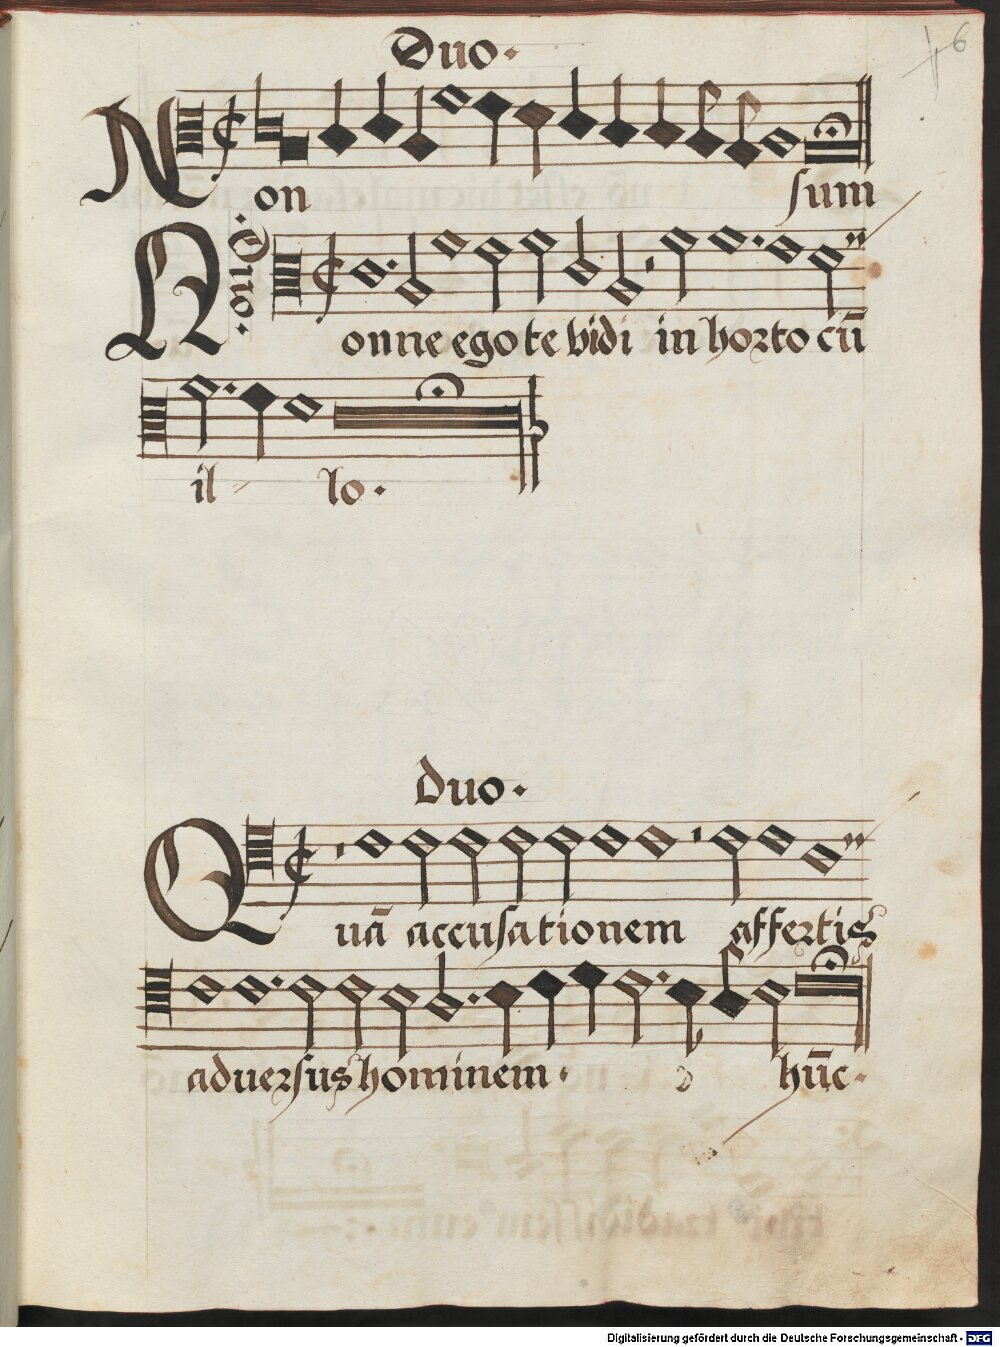 6
Duo·
Non sum
·Duo·
Nonne ego te vidi in horto cū
il lo·
Duo·
Quā accusationem affertis
aduersus hominem· hūc·
Digitalisierung gefördert durch die Deutsche Forschungsgemeinschaft - DFG